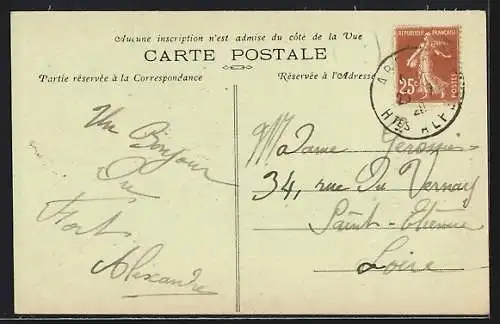 Aucune inscription n'est admise du côté de la Vue
CARTE POSTALE
Partie réservée à la Correspondance
Réservée à l'Adresse
REPUBLIQUE FRANÇAISE
25c
POSTES
HTES ALPES
Un Bonjour
Du
Fort
Alexandre
Madame
34, rue Du Vernay
Saint-Etienne
Loire